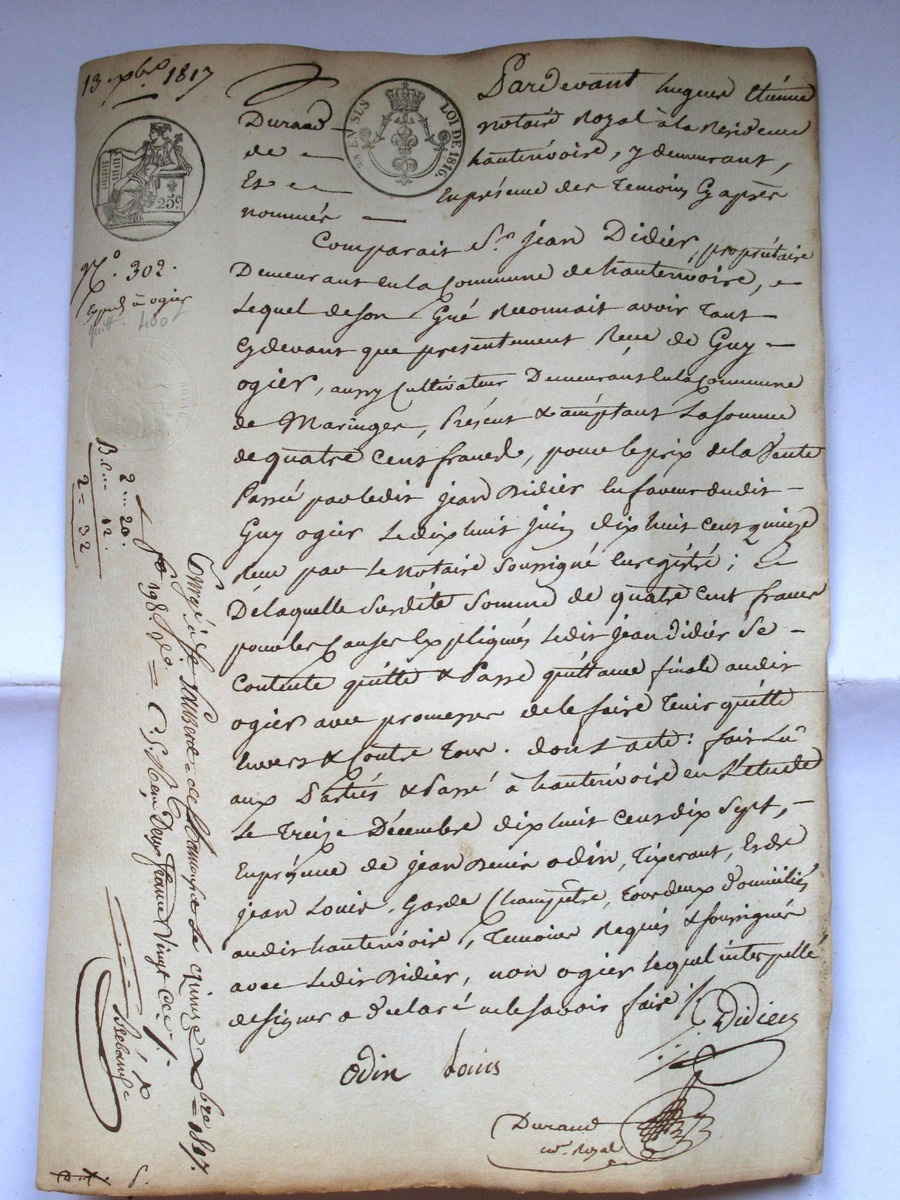 13. xbre 1817
Pardevant hugues Etienne
Durand notaire Royal à la Residence
de hauterivoire, y demeurant,
Et en présence des Temoins Cy après
nommés
EN SUS
LOI DE 1816.
25c
N.º 302.
Expéd. à ogier
quitt. 400f
Comparait Sr. jean Didier, propriétaire
Demeurant en la Commune de hauterivoire,
Lequel de son Gré Reconnait avoir Tant
Cydevant que présentement Reçu de Guy
ogier, aussy Cultivateur Demeurant en la Commune
de Maringes, Présent & acceptant La somme
de quatre Cens francs, pour le prix de la Vente
Passé par ledit jean Didier en faveur dudit
Guy ogier Le dix huit juin dix huit cent quinze
Reçu par Le notaire soussigné Enregistré;
De laquelle Surdite Somme de quatre Cent francs
pour les Causes Expliqués Ledit jean Didier Se
Contente quitte & Passe quittance finale audit
ogier avec promesse de le faire Tenir quitte
Envers & Contre Tous. dont acte: fait Lu
aux Parties & Passé à hauterivoire en L'etude
Le Treize Décembre dix huit Cens dix Sept,
En présence de jean Denis odin, Tixerant, Et de
jean Louis, Garde Champêtre, Tous deux domiciliés
audit hauterivoire, Temoins Requis & soussignés
avec Ledit Didier, non ogier lequel interpellé
de signer a déclaré ne le savoir faire
Didier
odin Louis
Durand
nre. Royal
2 -- 20.
12.
2 = 32
Deux francs Vingt
xbre 1817.